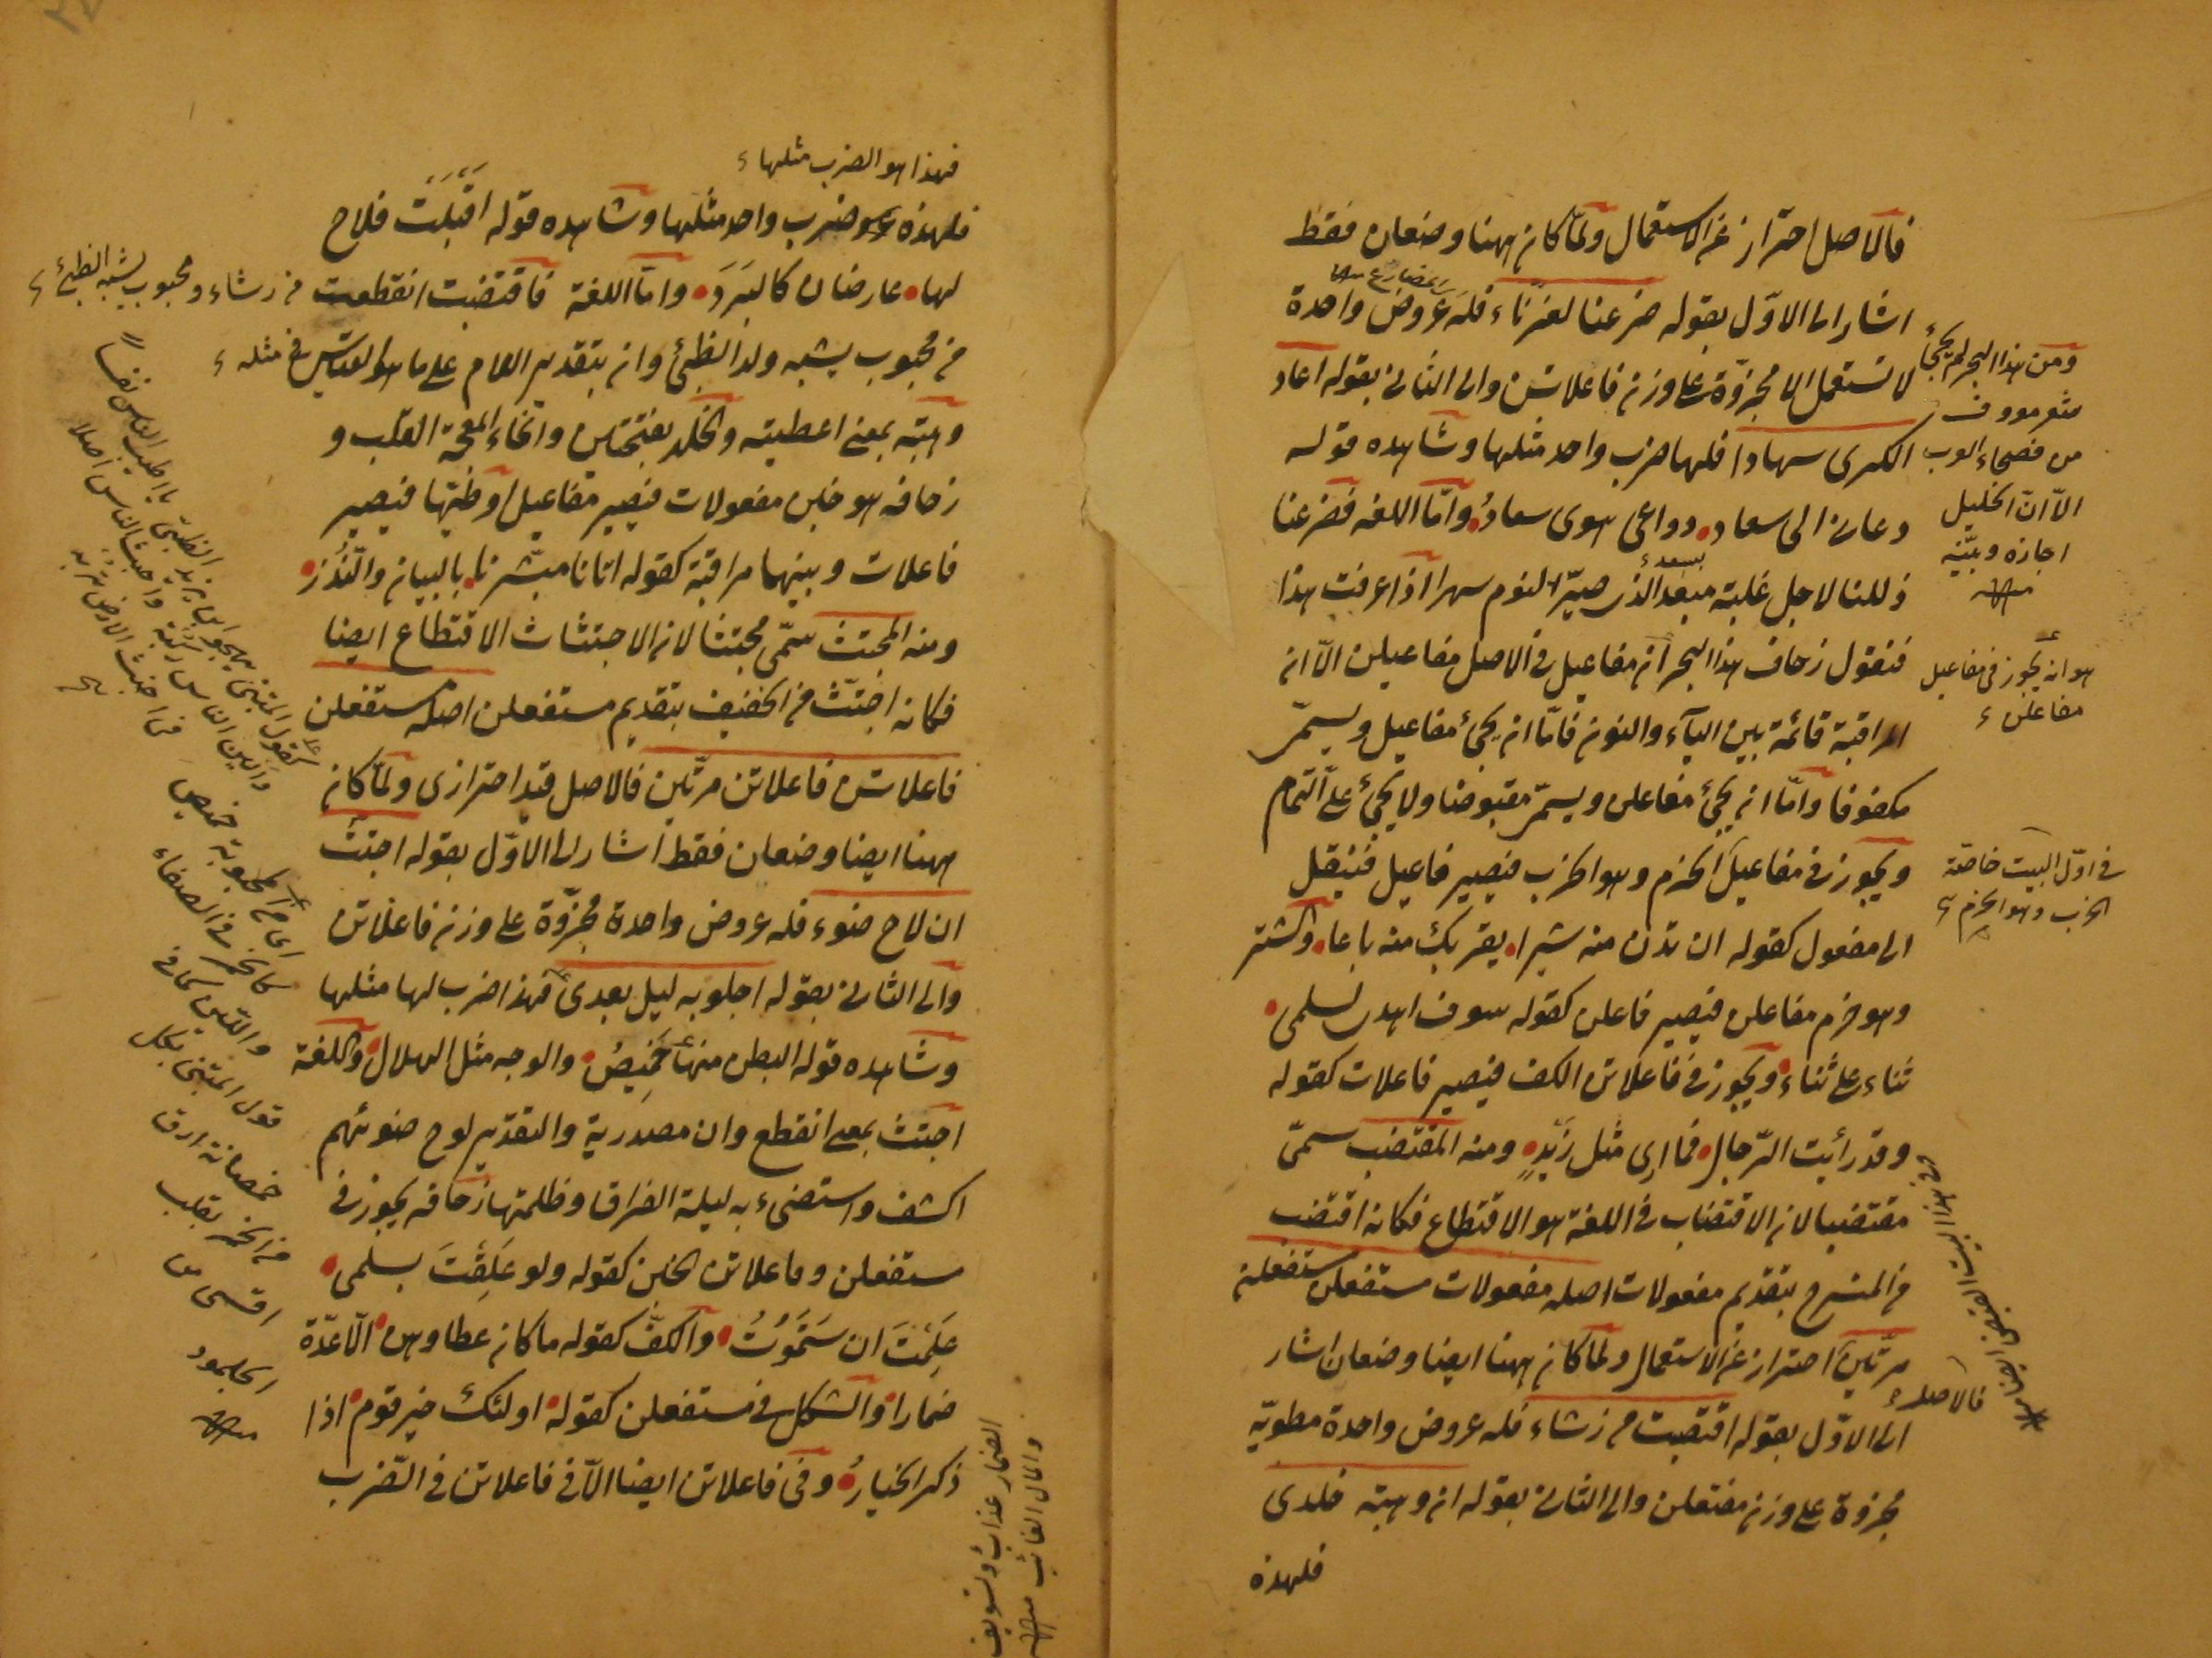 فالاصل احتراز عن الاستعمال ولمّا كان ههنا وضعان فقط
اشار الى الاوّل بقوله ضرعنا لغرّناء فله عروض واحدة
لا تستعمل الا مجزوّة على وزن فاعلاتن والى الثانى بقوله اعاد
الكرى سهادا فلها ضرب واحد مثلها وشاهده قوله
دعانى الى سعاد دواعى هوى سعاد وامّا اللغه فضرعنا
ذللنا لاجل غلبة مبعد الذى صيّر النوم سهرا اذا عرفت هذا
فنقول زحاف هذا البحر ان مفاعيل فى الاصل مفاعيلن الّا ان
المراقبة قائمة بين الياء والنون فامّا ان يجئ مفاعيل ويسمّى
مكفوفا وامّا ان يجئ مفاعلن ويسمّى مقبوضا ولا يجئ على التمام
ويجوز فى مفاعيل الخرم وهو الخرب فيصير فاعيل فينقل
الى مفعول كقوله ان تدن منه شبرا يقربك منه باعا والشتر
وهو خرم مفاعلن فيصير فاعلن كقوله سوف اهدى لسلمى
ثناء على ثناء ويجوز فى فاعلاتن الكف فيصير فاعلات كقوله
وقد رأيت الرّجال فما ارى مثل زَيْدٍ ومنه المقتضب سمّى
مقتضبا لان الاقتضاب فى اللغة هو الاقتطاع فكانه اقتضب
من المنسرح بتقديم مفعولات اصله مفعولات مستفعلن مستفعلن
مرّتين احتراز عن الاستعمال ولمّا كان ههنا ايضا وضعان اشار
الى الاوّل بقوله اقتضبت من رشاء فله عروض واحدة مطويّة
مجزوة على وزن مفتعلن والى الثانى بقوله ان وهبته خلدى
فلهذه
ومن هذا البحر لم يجئ
شعر معروف
من فصحاء العرب
الّا انّ الخليل
اجازه وبيّنه
منه
هو انه يجوز فى مفاعيل
مفاعلن
فى اوّل البيت خاصّة
الخرب وهو الخرم
فالاصل
فهذا هو الضرب مثلها
فلهذه ضرب واحد مثلها وشاهده قوله اقبَلَت فلاح
لها عارضان كالبَرَدَ وامّا اللغة فاقتضبت انقطعت من رشاء ومحبوب يشبه الظبى
من محبوب يشبه ولد الظبئ وان بتقدير اللام على ما هو القياس فى مثله
وهبته بمعنى اعطيته والخلد بفتحتين والخاء المعجمة القلب و
زحافه هو خبن مفعولات فيصير مفاعيل او طيّها فيصير
فاعلات وبينهما مراقبة كقوله اتانا مبشرنا بالبيان والنُّذز
ومنه المجتث سمّى مجتثا لان الاجتثاث الاقتطاع ايضا
فكانه اجتثّ من الخفيف بتقديم مستفعلن اصله مستفعلن
فاعلاتن فاعلاتن مرّتين فالاصل قيد احترازى ولمّا كان
ههنا ايضا وضعان فقط اشار الى الاوّل بقوله اجتث
ان لاح ضوء فله عروض واحدة مجزوّة على وزن فاعلاتن
والى الثانى بقوله اجلو به ليل بعدى فهذا ضرب لها مثلها
وشاهده قوله البطن منها خَمِيصٌ والوجه مثل الهلال واللغة
اجتث بمعنى انقطع وان مصدرية والتقدير لوح ضوئهم
اكشف واستضىء به ليلة الفراق وظلمتها زحافه يجوز فى
مستفعلن وفاعلاتن الخبن كقوله ولو عَلِقْتَ بسلمى
عَلِمْتَ ان سَتَمُوتُ والكفّ كقوله ما كان عطاوهن الّا عدّة
ضمارا والشكل فى مستفعلن كقوله اولئك خير قوم اذا
ذكر الخيارُ وفى فاعلاتن ايضا الّا فى فاعلاتن فى الضّرب
كقول المتنبى
والدين
الضمار عذاب وتسويف
والمال الغائب منه
قول المتنبى بكل
خمصانة ارق
من الخمر بقلب
اقسى من
الجلمود
منه